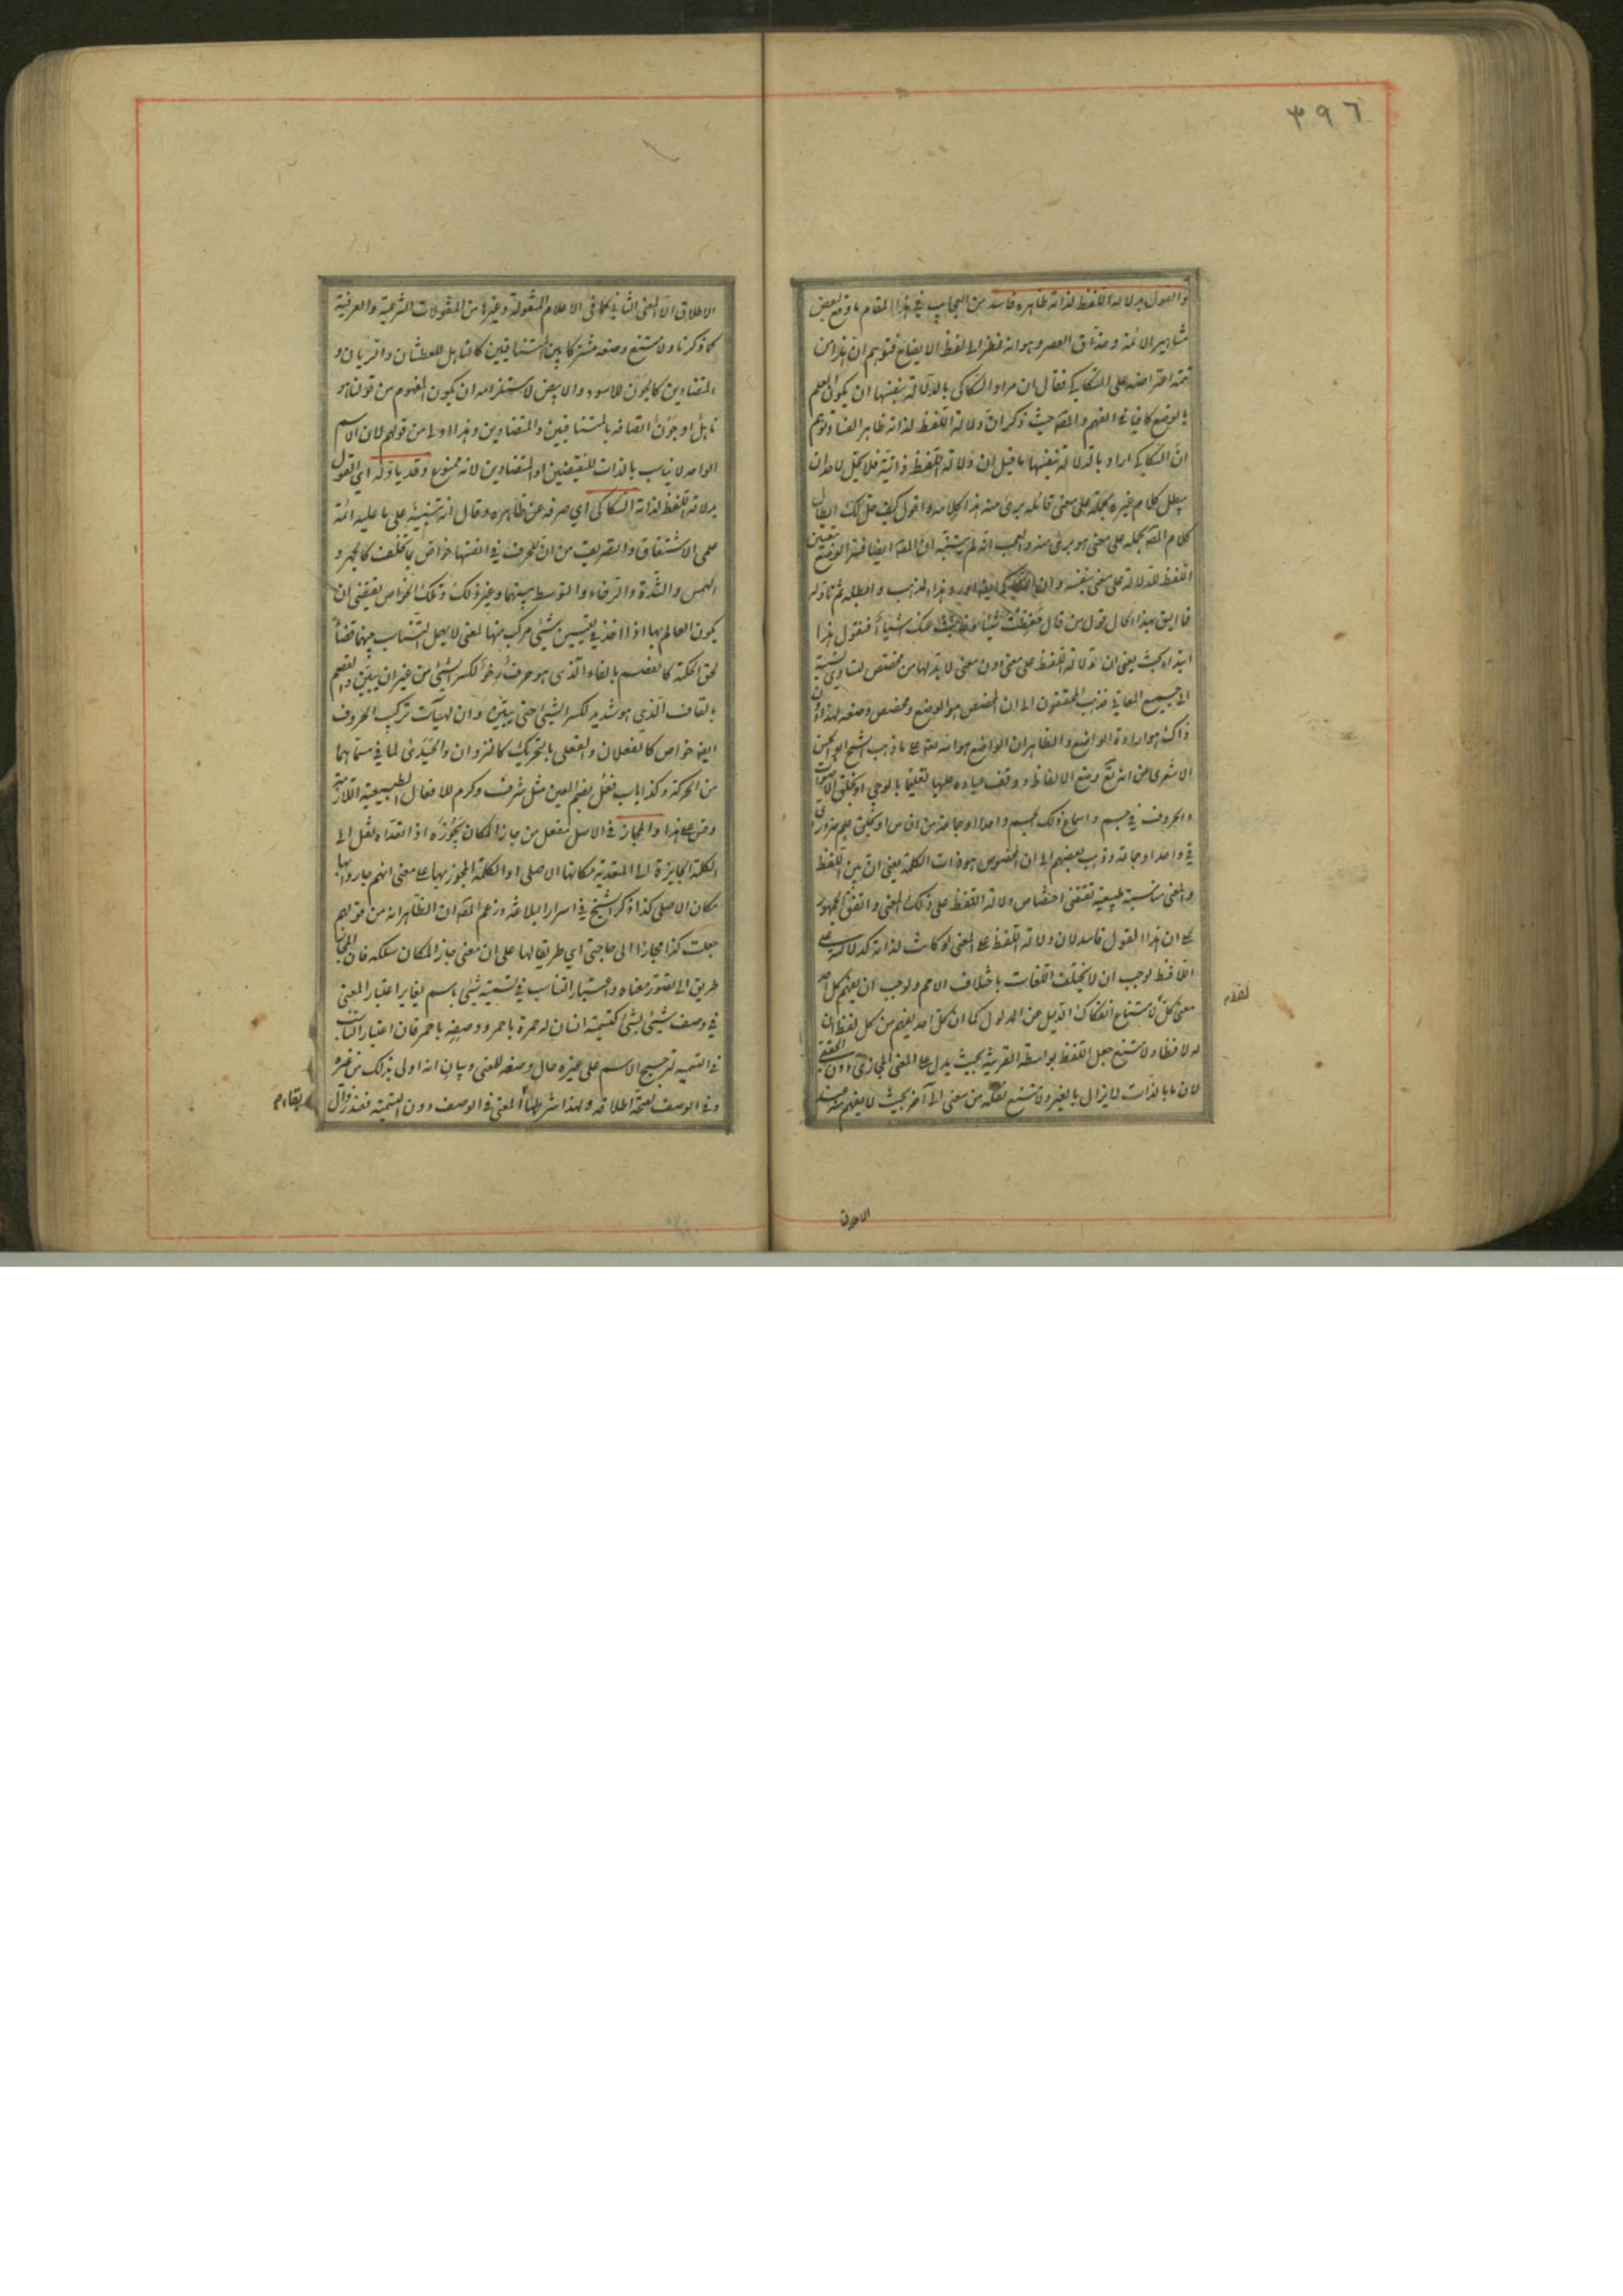 ٣٩٦
والقول بدلالة اللفظ لذاته ظاهره فاسد من العجايب في هذا المقام ما وقع لبعض
مشاهير الائمة وحذاق العصر وهو انه نظر الى لفظ الايضاح فتوهم ان هذا من
تتمة اعتراضه على السكاكي فقال ان مراد السكاكي بالدلالة بنفسها ان يكون العلم
بالوضع كافيا في الفهم والمصه حيث ذكر ان دلالة اللفظ لذاته ظاهر الفساد توهم
ان السكاكي اراد بالدلالة بنفسها ما قيل ان دلالة اللفظ ذاتية فلا يحل لاحد ان
يبطل كلام غيره بحمله على معنى قائله برئ منه هذا كلامه واقول كيف حل لك ابطال
كلام المصه بحمله على معنى هو برئ منه والعجب انه لم يتنبه ان المصه ايضا فسر الوضع بتعيين
اللفظ للدلالة على معنى بنفسه وان السكاكي ايضا اورد هذا المذهب وابطله ثم تاوله
فما اليق بهذا الحال قول من قال حفظت شيئا وغابت عنك اشياء فنقول هذا
ابتداء بحث يعني ان دلالة اللفظ على معنى دون معنى لا بد لها من مخصص لتساوي نسبته
الى جميع المعاني فذهب المحققون الى ان المخصص هو الوضع ومخصص وضعه لهذا دون
ذاك هو ارادة الواضع والظاهر ان الواضع هو الله تعه على ما ذهب اليه الشيخ ابو الحسن
الاشعري من انه تع وضع الالفاظ ووقف عباده عليها تعليما بالوحي او بخلق الاصوات
والحروف في جسم واسماع ذلك الجسم واحدا او جماعة من الناس او بخلق علم ضروري
في واحد او جماعة وذهب بعضهم الى ان المخصوص هو ذات الكلمة يعني ان بين اللفظ
والمعنى مناسبة طبيعية تقتضي اختصاص دلالة اللفظ على ذلك المعنى واتفق الجمهور
على ان هذا القول فاسد لان دلالة اللفظ على المعنى لو كانت لذاته كدلالته على
اللافظ لوجب ان لا يختلف اللغات باختلاف الامم ولوجب ان يفهم كل احد
معنى كل لامتناع انفكاك الدليل عن المدلول كما ان كل احد يفهم من كل لفظ ان
له لافظا ولامتنع جعل اللفظ بواسطة القرينة بحيث يدل على المعنى المجازي دون الحقيقي
لان ما بالذات لا يزال بالغير ولامتنع نقله من معنى الى آخر بحيث لا يفهم منه عند
الاطلاق
الاطلاق الا المعنى الثاني كما في الاعلام المنقولة وغيرها من المنقولات الشرعية والعرفية
كما ذكرنا ولامتنع وضعه مشتركا بين المتنافيين كالناهل للعطشان والريان و
المتضادين كالجون للاسود والابيض لاستلزامه ان يكون المفهوم من قولنا هو
ناهل او جون اتصافه بالمتنافيين والمتضادين وهذا اولى من قولهم لان الاسم
الواحد لا يناسب بالذات للنقيضين او المتضادين لانه ممنوع وقد تاوله اي القول
بدلالة اللفظ لذاته السكاكي اي صرفه عن ظاهره وقال انه تنبيه على ما عليه ائمة
علمي الاشتقاق والتصريف من ان للحروف في انفسها خواص بها تختلف كالجهر و
الهمس والشدة والرخاء والتوسط بينهما وغير ذلك وتلك الخواص يقتضي ان
يكون العالم بها اذا اخذ في تعيين شيئ مركب منها لمعنى لا يهمل التناسب بينهما قضاء
لحق الحكمة كالفصم بالفاء الذي هو حرف رخو لكسر الشيئ من غير ان يبين والقصم
بالقاف الذي هو شديد لكسر الشيئ حتى يبين وان لهيآت تركيب الحروف
ايضا خواص كالفعلان والفعلى بالتحريك كالنزوان والحيدى لما في مسماهما
من الحركة وكذا باب فعل بضم العين مثل شرف وكرم للافعال الطبيعية اللازمة
وقس على هذا والمجاز في الاصل مفعل من جاز المكان يجوزه اذا تعداه نقل الى
الكلمة الجايزة اي المتعدية مكانها الاصلي او الكلمة المجوز بها على معنى انهم جازوا بها
مكان الاصلي كذا ذكر الشيخ في اسرار البلاغة وزعم المصه ان الظاهر انه من قولهم
جعلت كذا مجازا الى حاجتي اي طريقا لها على ان معنى جاز المكان سلكه فان المجاز
طريق الى تصور معناه واعتبار التناسب في تسمية شيئ باسم يغاير اعتبار المعنى
في وصف شيئ بشيئ كتسمية انسان له حمرة باحمر ووصفه باحمر فان اعتبار التناسب
في التسمية لترجيح الاسم على غيره حال وضعه للمعنى وبيان انه اولى بذلك من غيره
وفي الوصف لصحة اطلاقه ولهذا شرط بقاء المعنى في الوصف دون التسمية فعند زوال